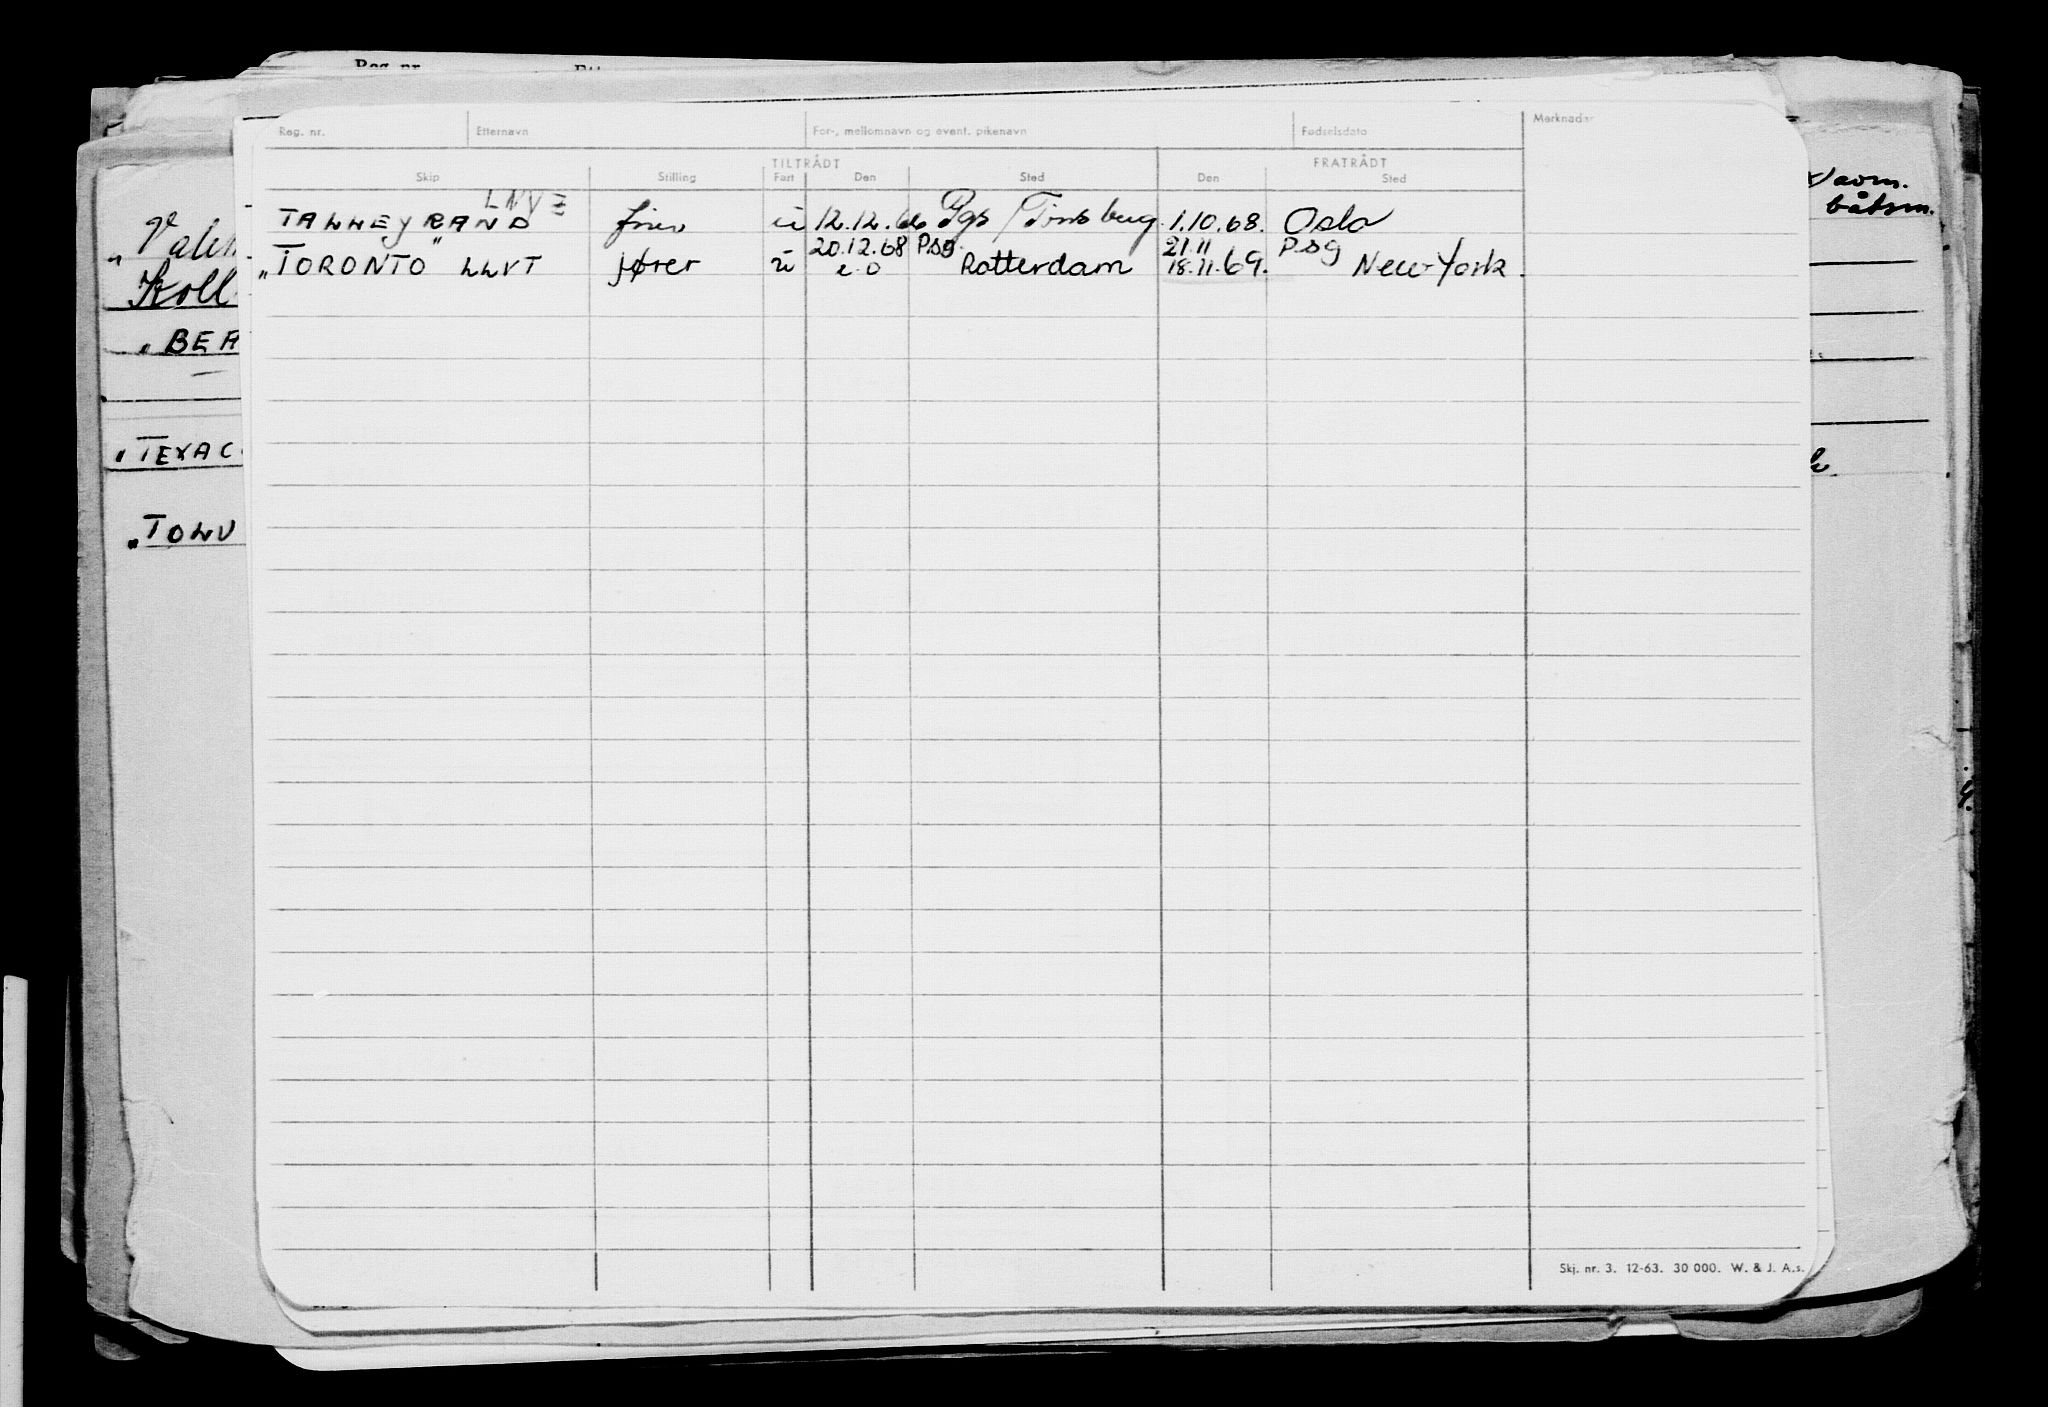 Reg. nr.
Reg. nr. Etternavn For-, mellomnavn og event. pikenavn Fødselsdato Merknader
TILTRÅDT FRATRÅDT
Skip Stilling Fart Den Sted Den Sted
LNVZ
TALLEYRAND fører u 12.12.66 Pgr / Tønsberg 1.10.68. Oslo
20.12.68 Psg. 21.11 Psg
"TORONTO" LLVT fører u Rotterdam 18.11.69. New York.
avm.
båtsm.
"BEA
"TEXAC
"TOLU
Skj. nr. 3. 12-63. 30 000. W. & J. A.s.